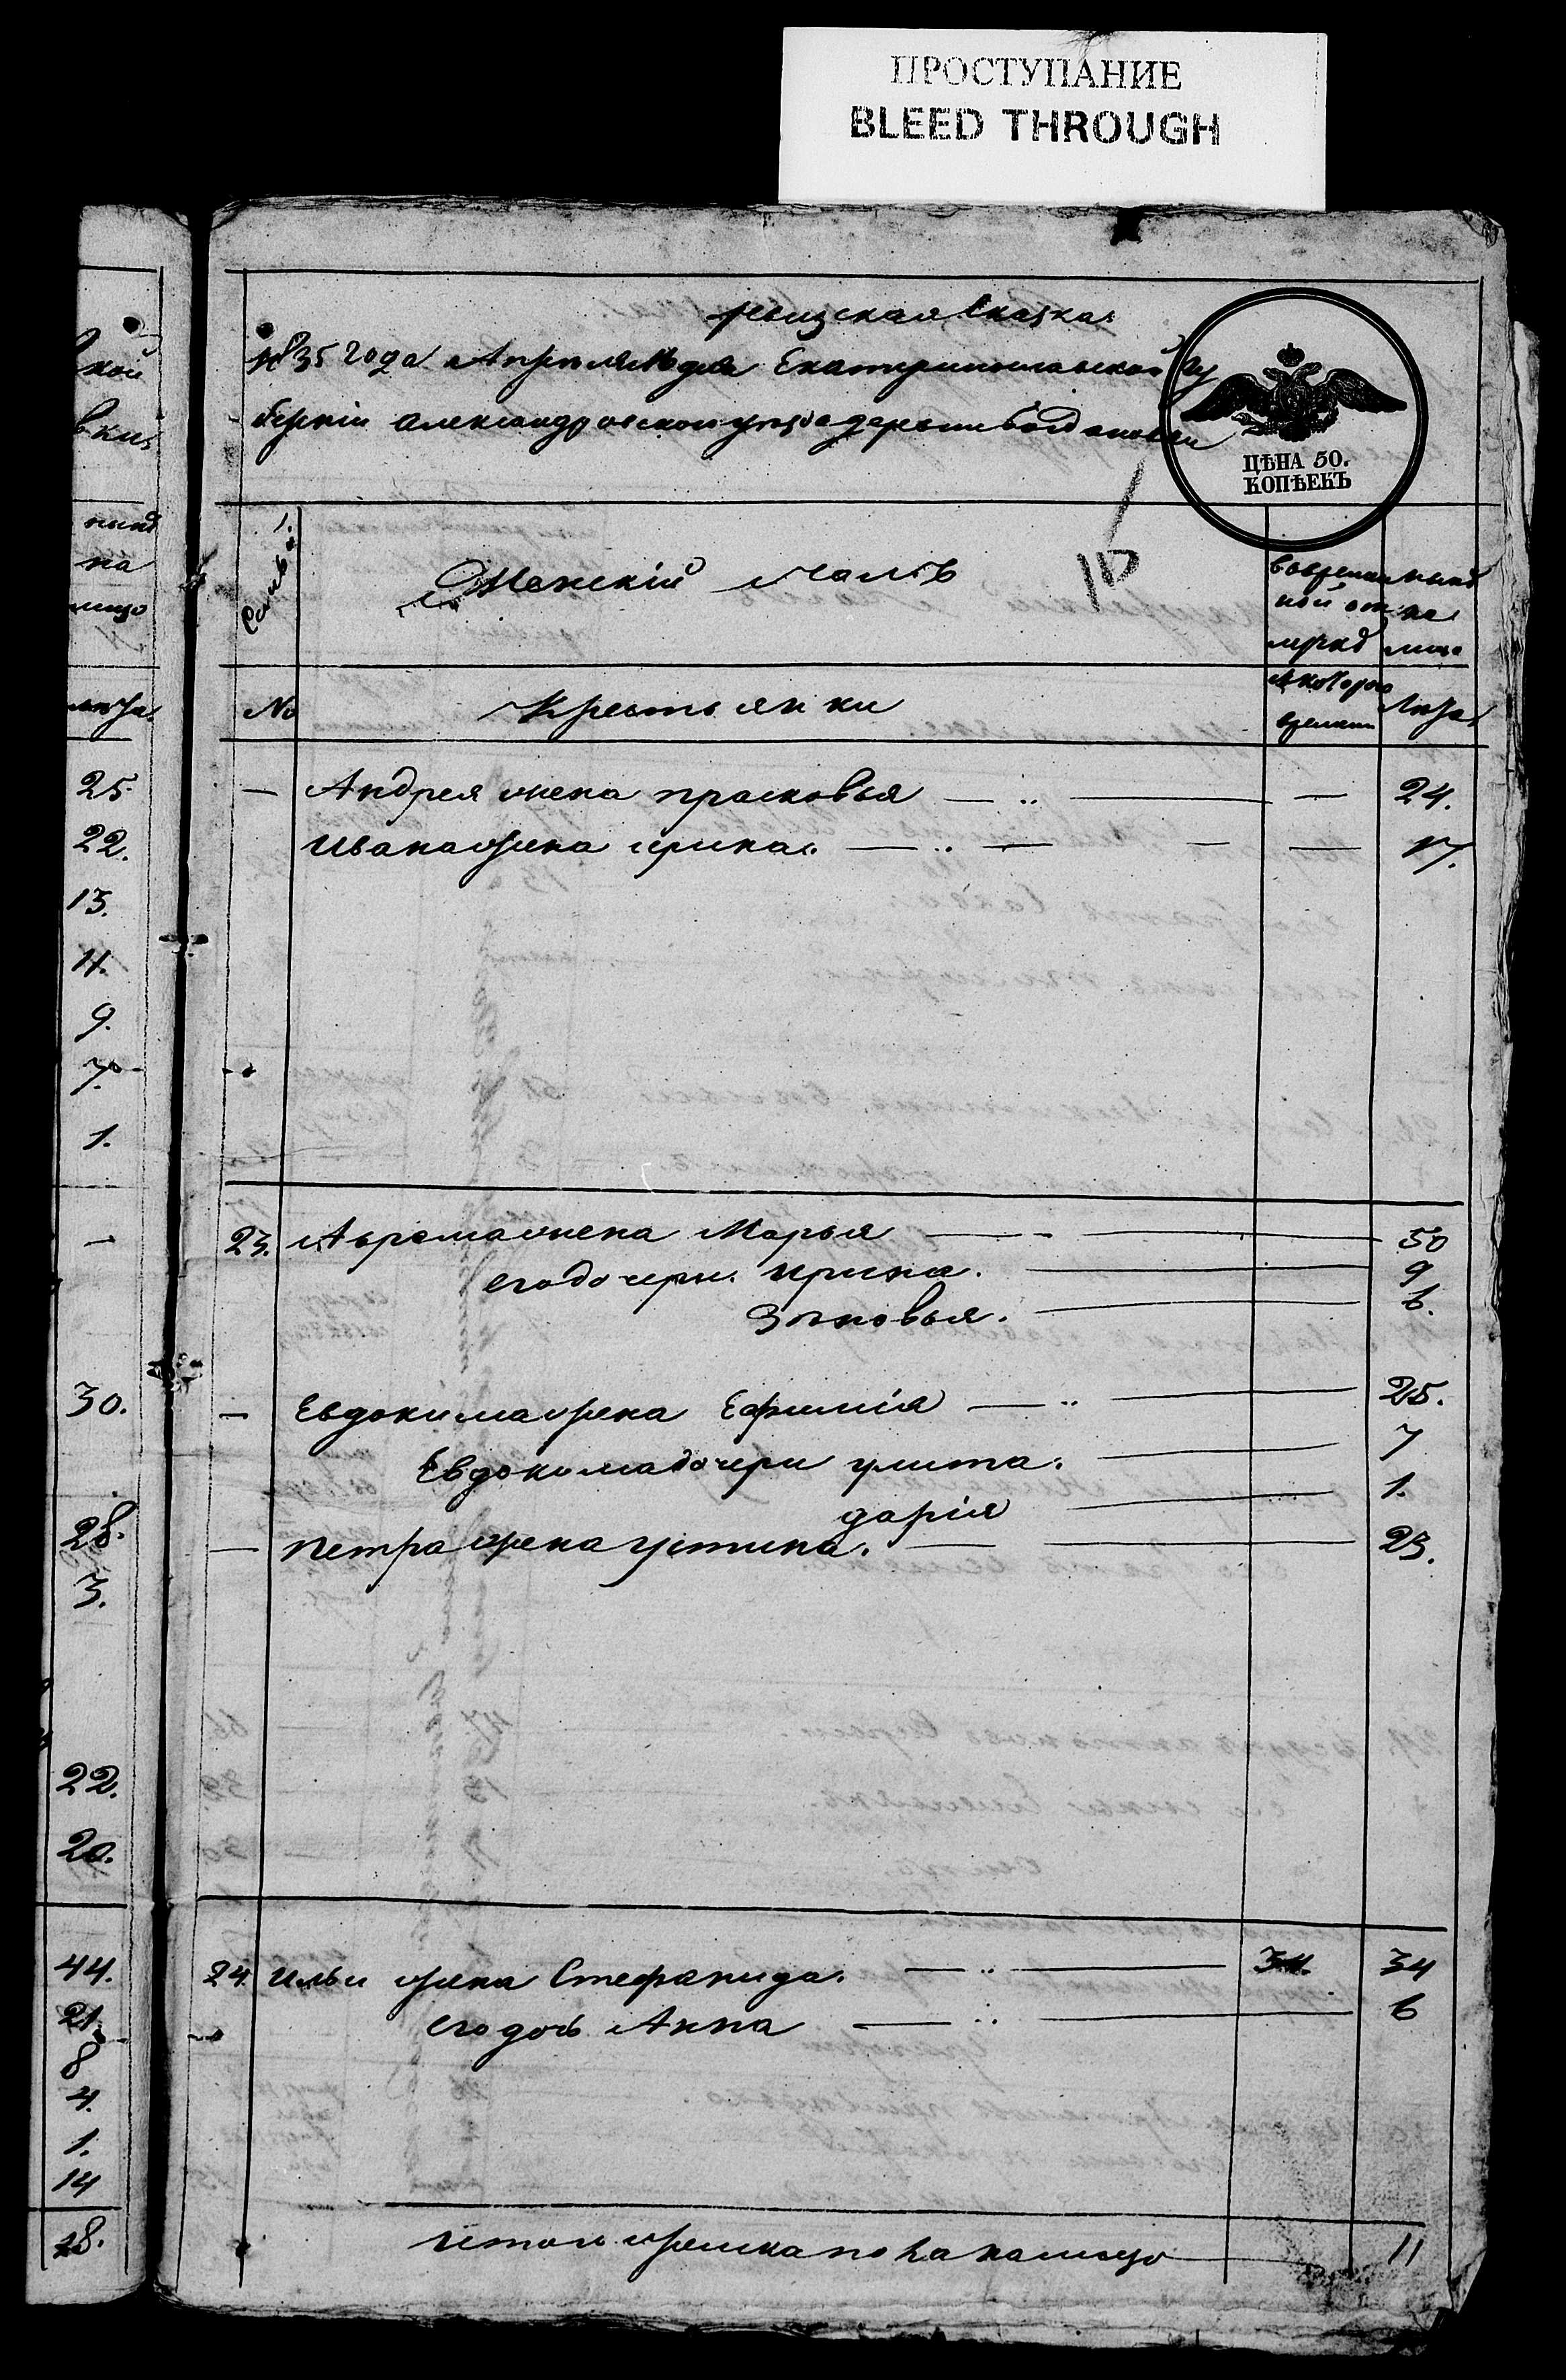 ПРОСТУПАНИЕ
BLEED THROUGH
ревизская Сказка
1835 года Апреля дня Екатеринославской гу
берніи Александровского уезда деревни Богдановки
ЦѢНА 50.
КОПѢЕКЪ
Семьи
Женскій полъ
10
во временной отлучке
ныне на лицо
№
Крестьянки
с которого времени
лета
Андрея жена прасковья — „ — — 24.
Ивана жена ирина. — „ — — — 17.
23. Аврама жена Марья — 50
его дочери. ирина. — 9
Зѣновья. — 6.
— Евдокима жена Ефимія — „ — 25.
Евдокима дочери улита. — 7
дарія — 1.
— петра жена устина. — 23.
24. ильи жена Стефанида. — „ — 34. 34
его дочь Анна — „ — 6
Итого женска пола налицо — 11
кой
вки
ныне
на
лицо
лета
25.
22.
13.
11.
9.
7.
1.
—
30.
28.
3.
22.
20.
44.
21.
8
4.
1.
14
28.